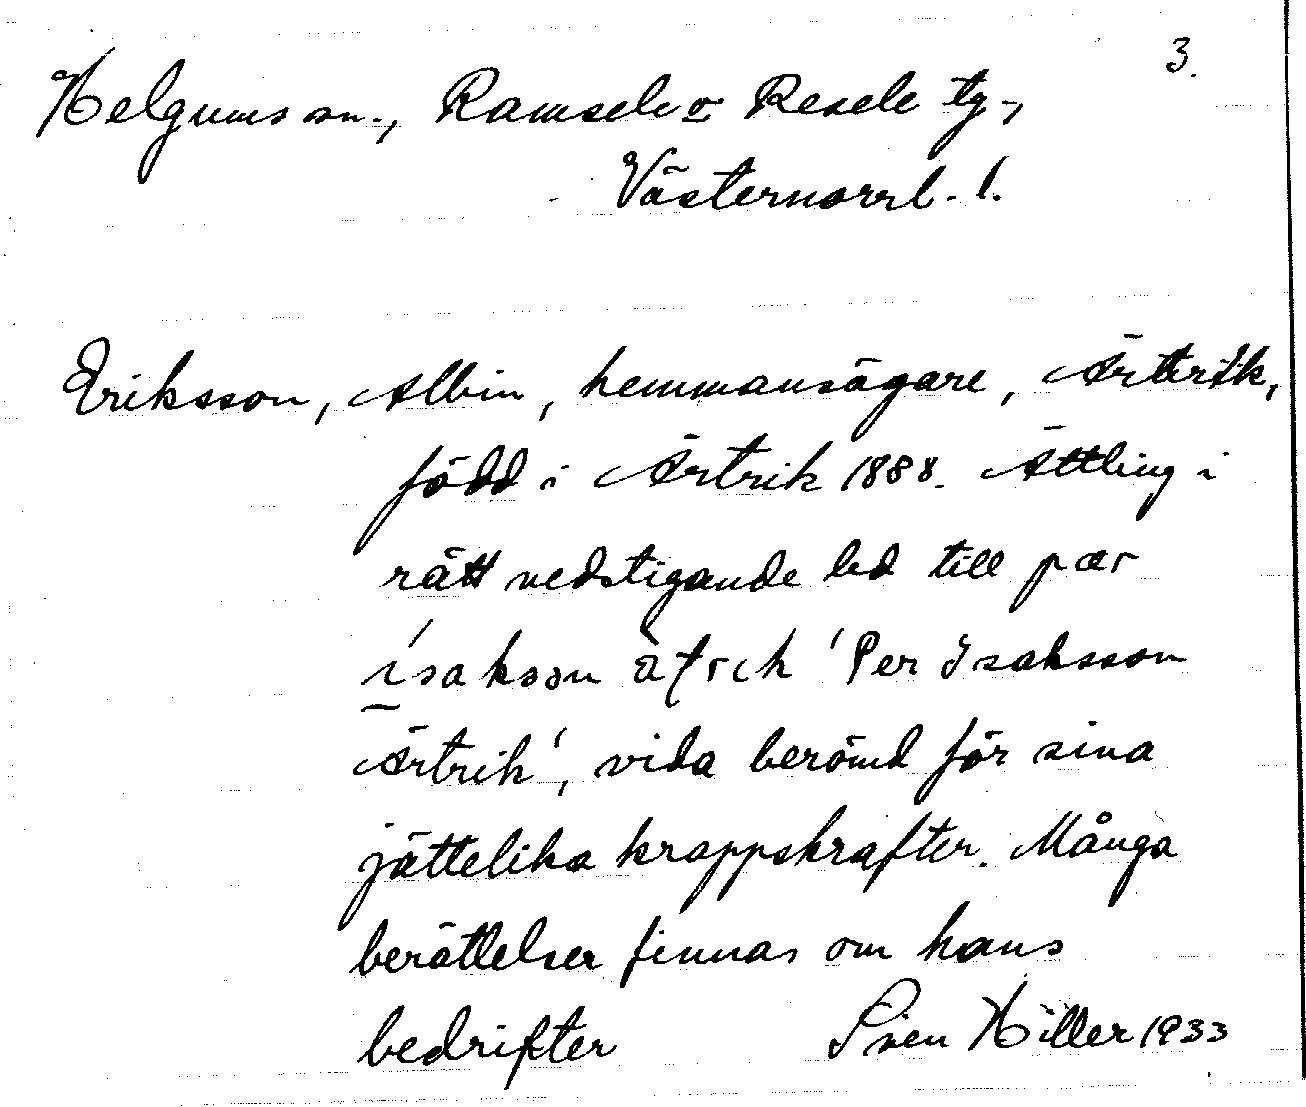 3.
Helgums sn., Ramsele o Resele tg.,
Västernorrl. l.
Eriksson, Albin, hemmansägare, Ärtrik,
född i Ärtrik 1888. Ättling i
rätt nedstigande led till pær
ísaksson 'Per Isaksson
Ärtrik', vida berömd för sina
jättelika kroppskrafter. Många
berättelser finnas om hans
bedrifter Sven Hiller 1933